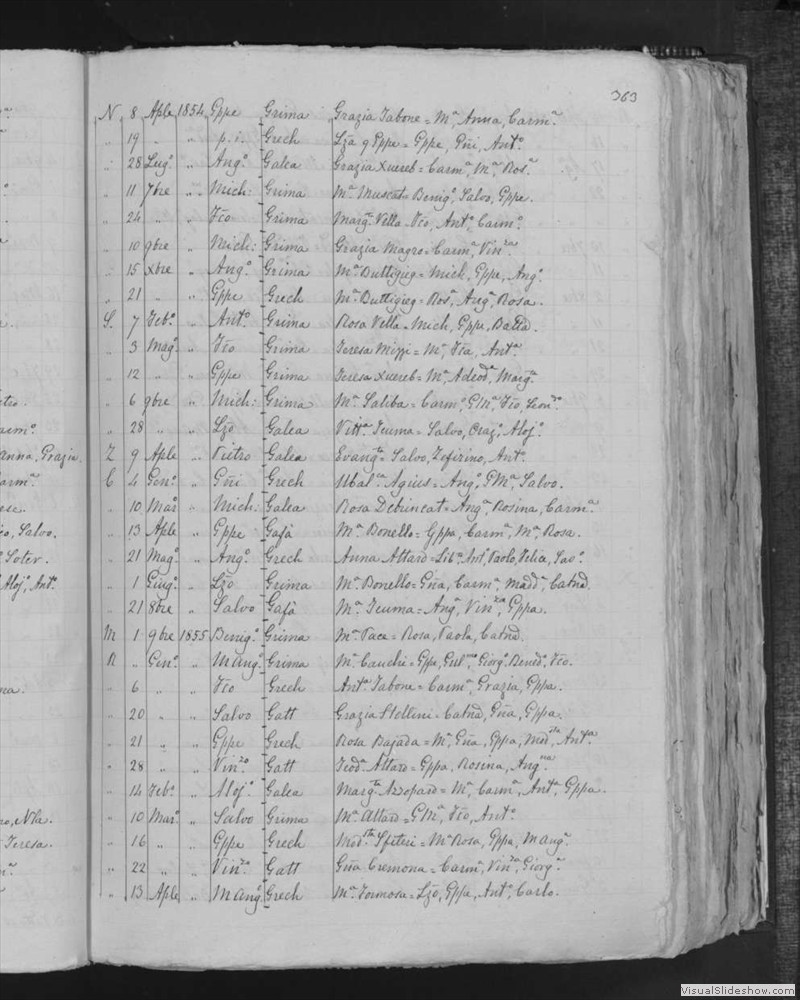 363
N 8 Aple 1854 Gppe Grima Grazia Tabone = Mª, Anna, Carmª.
" 19 " " p. i. Grech Lza q Gppe = Gppe, Gñi, Antº.
" 28 Lugº " Angº Galea Grazia Xuereb = Carmª, Mª, Rosª.
" 11 7bre " Mich: Grima Mª Muscat = Benigº, Salvo, Gppe.
" 24 " " Fco Grima Margª Vella = Fco, Antº, Carmº.
" 10 9bre " Mich: Grima Grazia Magro = Carmª, Vinza.
" 15 Xbre " Angº Grima Mª Buttigieg = Mich, Gppe, Angº.
" 21 " " Gppe Grech Mª Buttigieg = Rosª, Angª, Rosa.
S. 7 Febº " Antº Grima Rosa Vella = Mich, Gppe, Batta.
" 3 Magº " Fco Grima Teresa Mizzi = Mª, Fca, Antª.
" 12 " " Gppe Grima Teresa Xuereb = Mª, Adeodª, Margª.
" 6 9bre " Mich: Grima Mª Saliba = Carmº, GMª, Fco,
" 28 " " Lzo Galea Vittª Zeuma = Salvo, Orazº, Alojº.
Z 9 Aple " Pietro Galea Evangta = Salvo, Zefirino, Antº.
C 4 Genº " Gñi Grech Ubalca Agius = Angº, GMª, Salvo.
" 10 Mar " Mich: Galea Rosa Debrincat = Angª, Rosina, Carmª.
" 13 Aple " Gppe Gafà Mª Bonello = Gppa, Carmª, Mª, Rosa.
" 21 Magº " Angº Grech Anna Attard = Antº, Paolo, Felice, Savº.
" 1 Giugº " Lzo Grima Mª Bonello = Gña, Carmª, Madª, Catna.
" 21 8bre " Salvo Gafà Mª Zeuma = Angª, Vinza, Gppa.
M 1 9bre 1855 Benigº Grima Mª Pace = Rosa, Paola, Catna.
R " Genº " M Angº Grima Mª Cauchi = Gppe, Gulmo, Giorgº, Benedº, Fco.
" 6 " " Fco Grech Antª Tabone = Carmª, Grazia, Gppa.
" 20 " " Salvo Gatt Grazia Stellini = Catna, Gña, Gppa.
" 21 " " Gppe Grech Rosa Bajada = Mª, Gña, Gppa, Modsta, Antª.
" 28 " " Vinzo Gatt Teodª Attard = Gppa, Rosina, Angna
" 14 Febº " Alojº Galea Margta Azzopard = Mª, Carmª, Antª, Gppa.
" 10 Marº " Salvo Grima Mª Attard = GMª, Fco, Antº.
" 16 " " Gppe Grech Modsta Sfiteri = Mª Rosa, Gppa, M Angª.
" 22 " " Vinzo Gatt Gña Cremona = Carmª, Vinza, Giorgª.
" 13 Aple " M Angº Grech Mª Formosa = Lzo, Gppe, Antº, Carlo.
Anna, Grazia.
Salvo.
Soter.
Aloj, Antº.
Teresa.
VisualSlideshow.com